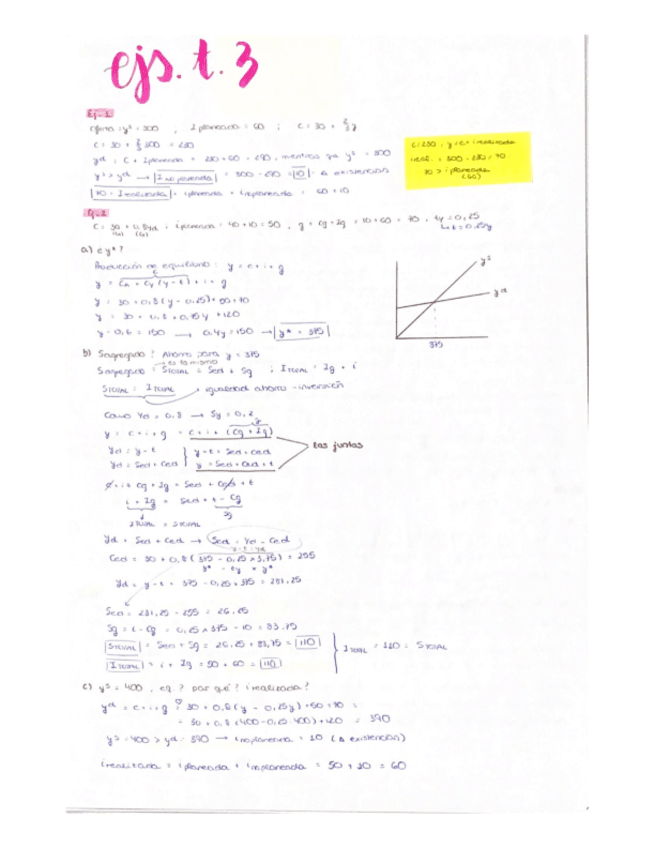 ejs. t. 3
Ej. 1
oferta: yˢ = 300 , I planeada = 60 ; C = 30 + ⅔y
C = 30 + ⅔ 300 = 230
yᵈ = C + Iplaneada = 230 + 60 = 290, mientras que yˢ = 300
yˢ > yᵈ → I no planeada = 300 - 290 = 10 = Δ existencias
70 = I realizada = iplaneada + inoplaneada = 60 + 10
C = 230 . y = c + i realizada
ireal. = 300 - 230 = 70
70 > i planeada
(60)
Ej. 2
C = 30 + 0,8yd , iplaneada = 40 + 10 = 50 , g = cg + Ig = 10 + 60 = 70 . ty = 0,25
↳ t = 0,25y
a) ¿ y*?
Producción de equilibrio : y = c + i + g
y = Ca + Cy (y - t) + i + g
y = 30 + 0,8 (y - 0,25) + 50 + 70
y = 30 + 0,8 . 0,75 y + 120
y - 0,6 = 150 → 0,4y = 150 → y* = 375
yˢ
yᵈ
375
b) Sagregado? Ahorro para y = 375
→ es lo mismo
Sagregado = STOTAL = Sed + Sg ; ITOTAL = Ig + i
STOTAL = ITOTAL → igualdad ahorro - inversión
Como Yd = 0,8 → Sy = 0,2
y = c + i + g = c + i + (Cg + Ig)
Yd = y - t } y - t = Sed + Ced
Yd = Sed + Ced } y = Sed + Ced + t
las juntas
c + i + Cg + Ig = Sed + Ced + t
i + Ig = Sed + t - Cg
Sg
ITOTAL = STOTAL
Yd = Sed + Ced → Sed = Yd - Ced
Ced = 30 + 0,8 (375 - 0,25 × 375) = 255
y* - ty × y*
Yd = y - t = 375 - 0,25 × 375 = 281,25
Sed = 281,25 - 255 = 26,25
Sg = t - Cg = 0,25 × 375 - 10 = 83,75
STOTAL = Sed + Sg = 26,25 + 83,75 = 110
ITOTAL = i + Ig = 50 + 60 = 110
ITOTAL = 110 = STOTAL
c) yˢ = 400 , eq.? por qué? i realizada?
yᵈ = c + i + g = 30 + 0,8 (y - 0,25y) + 50 + 70 =
= 30 + 0,8 (400 - 0,25 · 400) + 120 = 390
yˢ = 400 > yᵈ = 390 → inoplaneada = 10 (Δ existencias)
irealizada = iplaneada + inoplaneada = 50 + 10 = 60